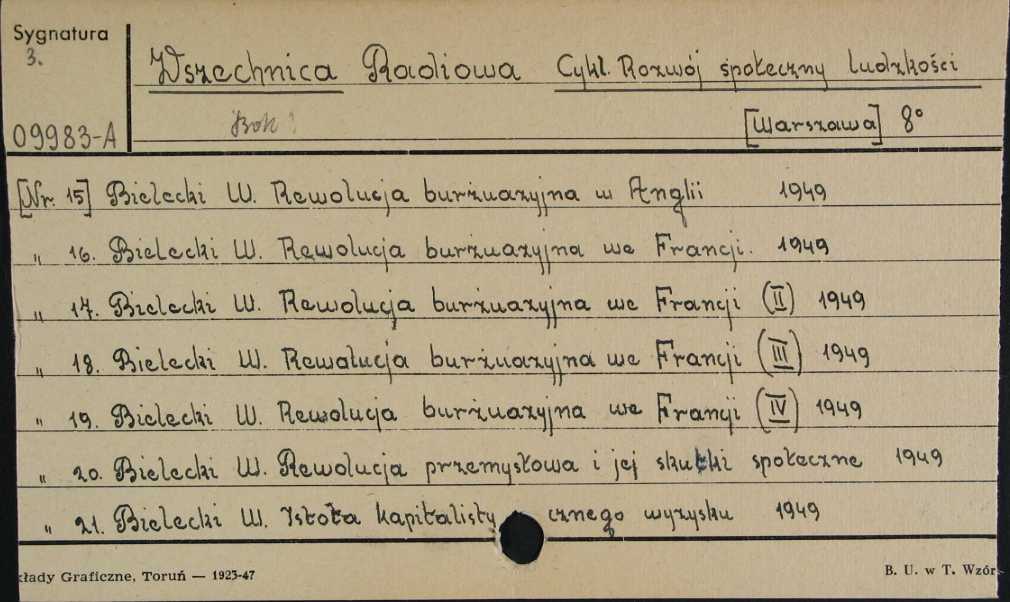 Sygnatura
3.
Wszechnica Radiowa Cykl. Rozwój społeczny ludzkości
09983-A
[Warszawa] 8°
[Nr. 15] Bielecki W. Rewolucja burżuazyjna w Anglii 1949
" 16. Bielecki W. Rewolucja burżuazyjna we Francji. 1949
" 17. Bielecki W. Rewolucja burżuazyjna we Francji (II) 1949
" 18. Bielecki W. Rewolucja burżuazyjna we Francji (III) 1949
" 19. Bielecki W. Rewolucja burżuazyjna we Francji (IV) 1949
" 20. Bielecki W. Rewolucja przemysłowa i jej skutki społeczne 1949
" 21. Bielecki W. Istota kapitalisty cznego wyzysku 1949
kłady Graficzne, Toruń — 1923-47
B. U. w T. Wzór